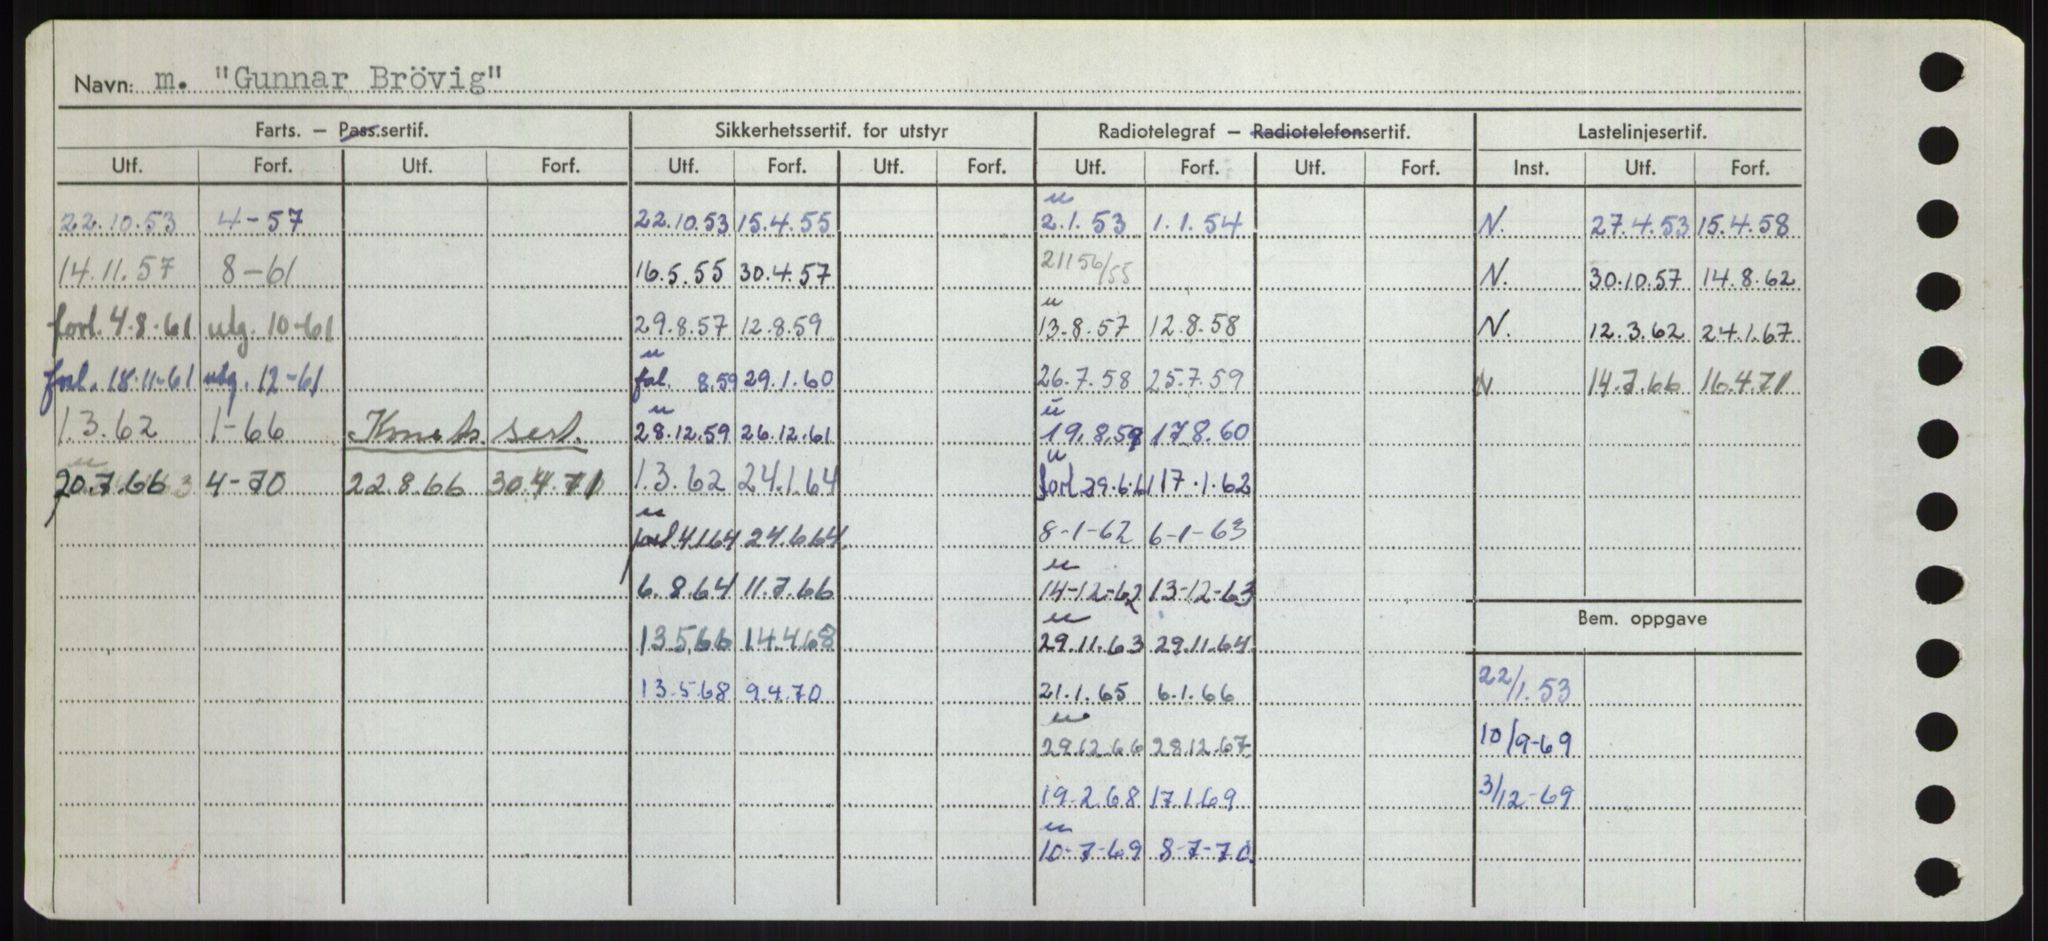 Navn: m. "Gunnar Brövig"
Farts. – Pass.sertif. Sikkerhetssertif. for utstyr Radiotelegraf – Radiotelefonsertif. Lastelinjesertif.
Utf. Forf. Utf. Forf. Utf. Forf. Utf. Forf. Utf. Forf. Utf. Forf. Inst. Utf. Forf.
u
22.10.53 4-57 22.10.53 15.4.55 2.1.53 1.1.54 N. 27.4.53 15.4.58
14.11.57 8-61 16.5.55 30.4.57 21156/55 N. 30.10.57 14.8.62
u
forl. 4.8-61 utg. 10-61 29.8.57 12.8.59 13.8.57 12.8.58 N. 12.3.62 24.1.67
u
forl. 18.11-61 utg. 12-61 fol. 8.59 29.1.60 26.7.58 25.7.59 N 14.7.66 16.4.71
u u
1.3.62 1-66 Konst. sert. 28.12.59 26.12.61 19.8.59 17.8.60
u u
20.7.66 4-70 22.8.66 30.4.71 1.3.62 24.1.64 forl 29.6.61 17.1.62
u
forl 4.1.64 24.6.64 8-1-62 6-1-63
u
6.8.64 11.7.66 14-12-62 13-12-63
u
Bem. oppgave
13.5.66 14.4.68 29.11.63 29.11.64
13.5.68 9.4.70 21.1.65 6.1.66 22/1.53
u
29.12.66 28.12.67 10/9-69
19.2.68 17.1.69 3/12-69
u
10-7-69 8-7-70